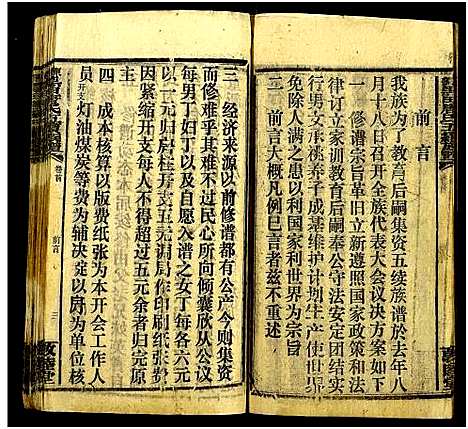 前言
我族为了教育后嗣集资五续族谱於去年八
月十八日召开全族代表大会议决方案如下
一 修谱宗旨革旧立新遵照国家政策和法
律订立家训教育后嗣奉公守法安定团结实
行男女承祧养子成基维护计划生产使世界
免除人满之患以利国家利世界
二 前言大概凡例巳言者兹不重述
三 经济来源以前修谱都有公产今则集资
而修难乎其难不过民心所向倾囊欣从公议
每男丁六元以及自愿入谱之女丁每各六元
内以一元归房柱开支五元归局作印刷纸张
因从紧缩开支每人不得超过五元余者归完原
主
四 成本核算以版费纸张为本开会工作人
员开支灯油煤炭等费为辅决定以房为单位核
卷首
前言
三
敦睦堂